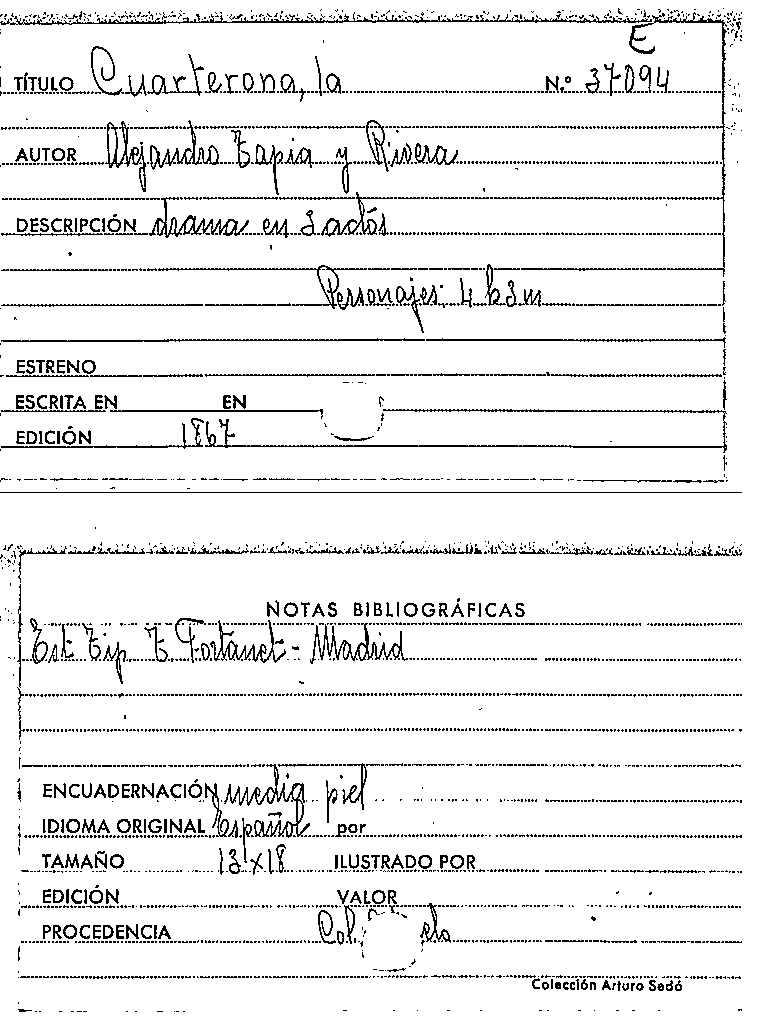 E
TÍTULO Cuarterona, la N.º 37094
AUTOR Alejandro Tapia y Rivera
DESCRIPCIÓN drama en 3 actos
Personajes: 4 h 3 m
ESTRENO
ESCRITA EN EN
EDICIÓN 1867
NOTAS BIBLIOGRÁFICAS
Est Tip T. Fortanet - Madrid
ENCUADERNACIÓN media piel
IDIOMA ORIGINAL Español por
TAMAÑO 13 x 18 ILUSTRADO POR
EDICIÓN VALOR
PROCEDENCIA Col.
Colección Arturo Sedó